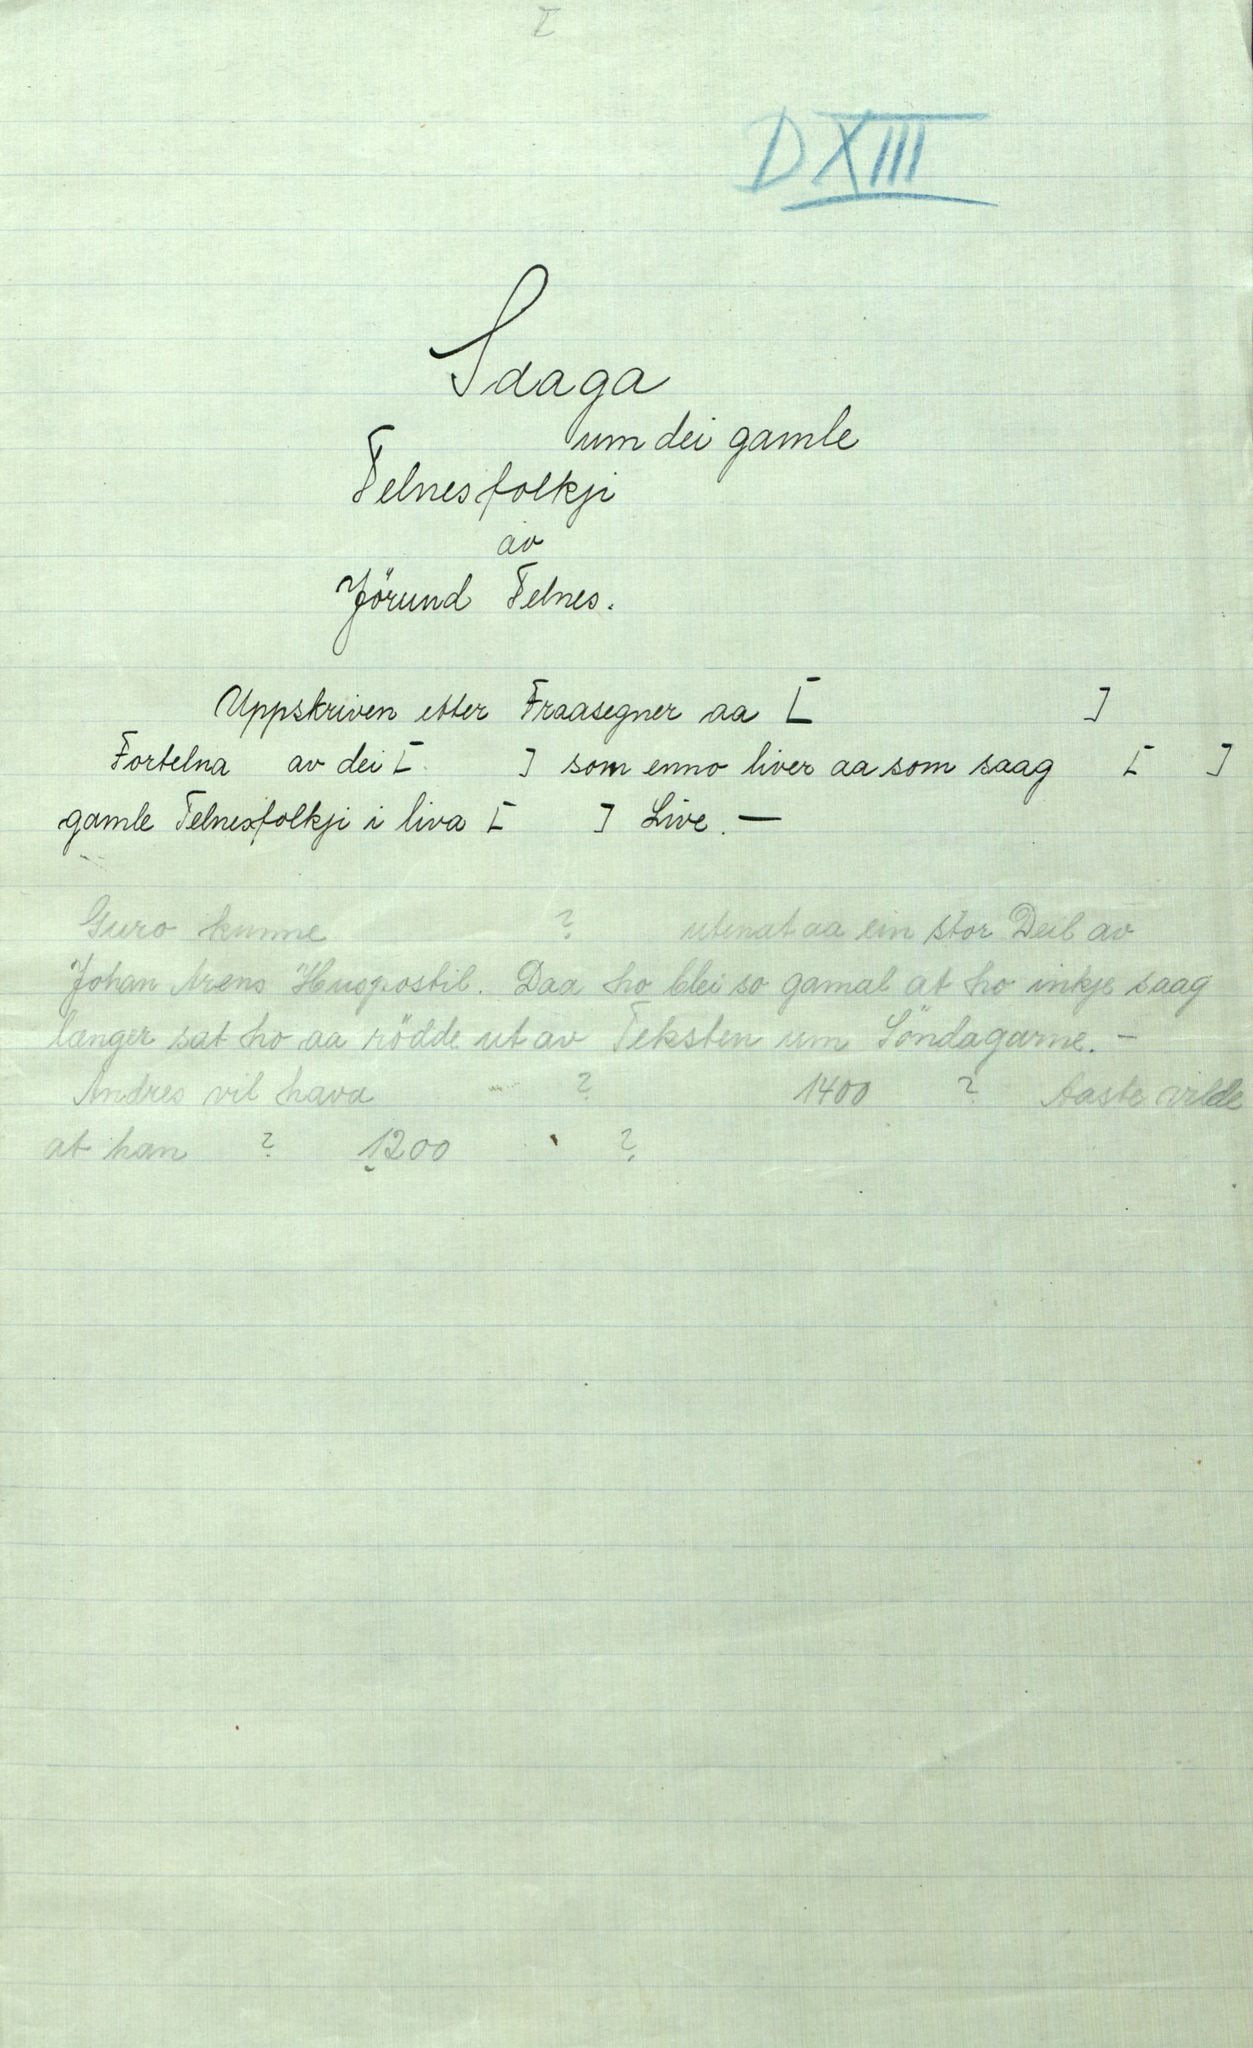 I
D XIII
Sdaga
um dei gamle
Telnesfolkji
av
Jörund Telnes.
Uppskriven etter Fraasegner aa [ ]
Fortelna av dei [ ] som enno liver aa som saag [ ]
gamle Telnesfolkji i liva [ ] Live. —
Guro kunne ? utenat aa ein stor Deil av
Johan Arens Huspostil. Daa ho blei so gamal at ho inkje saag
længer sat ho aa rödde ut av Teksten um Söndagarne. —
Andres vil hava ? 1400 ? Aaste vilde
at han ? 1200 ?